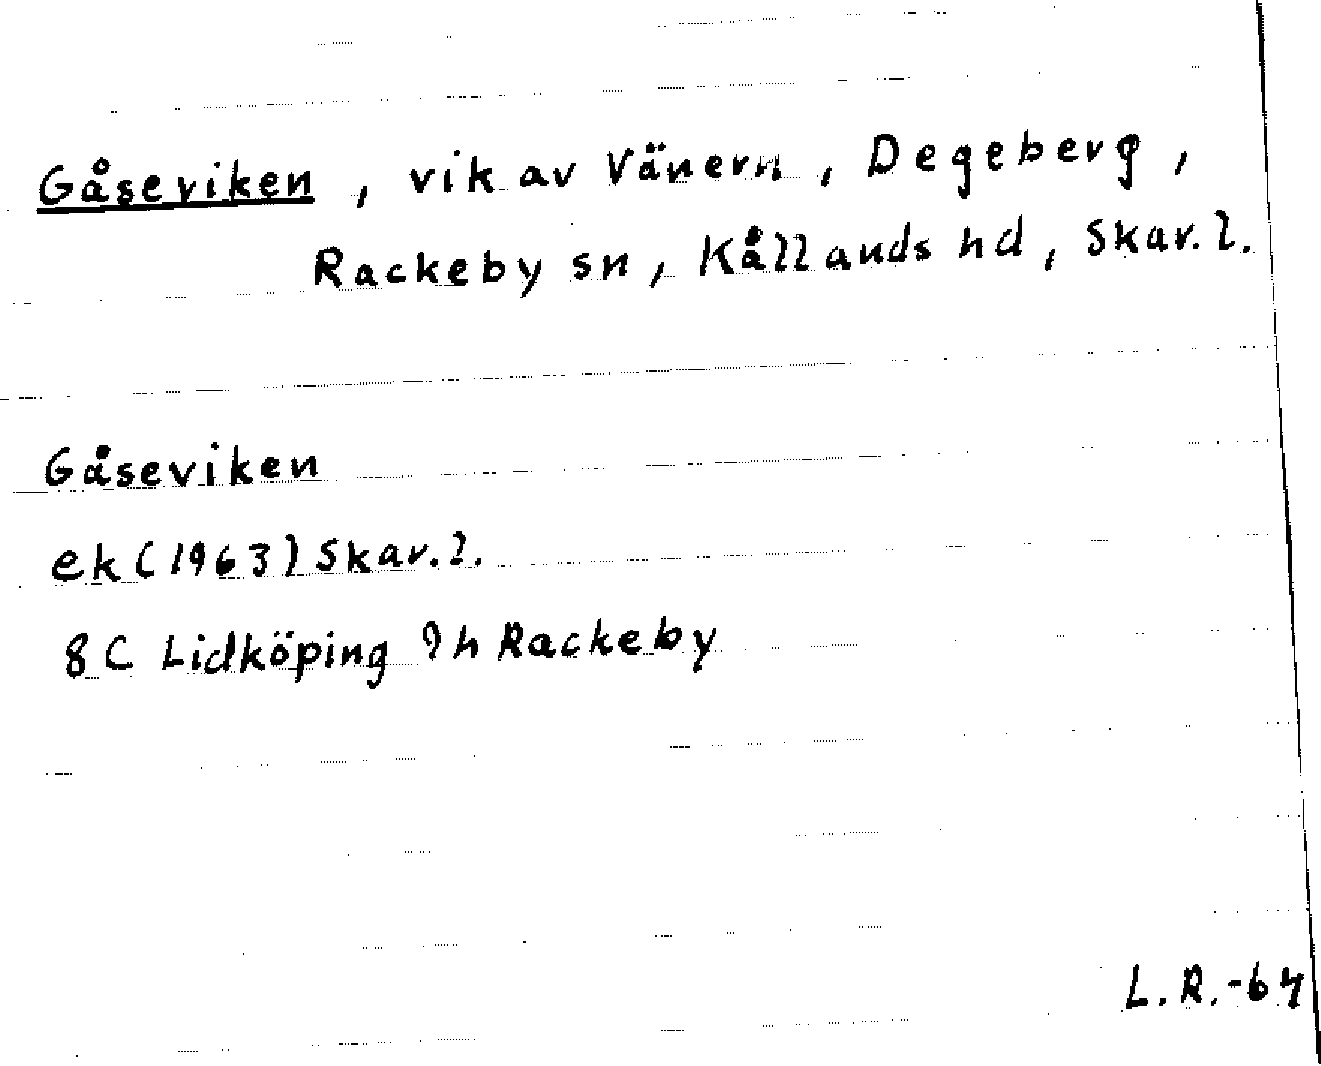 Gåseviken, vik av Vänern, Degeberg,
Rackeby sn, Kållands hd, Skar. l.
Gåseviken
ek (1963) Skar. l.
8C Lidköping 9h Rackeby
L.R.-64